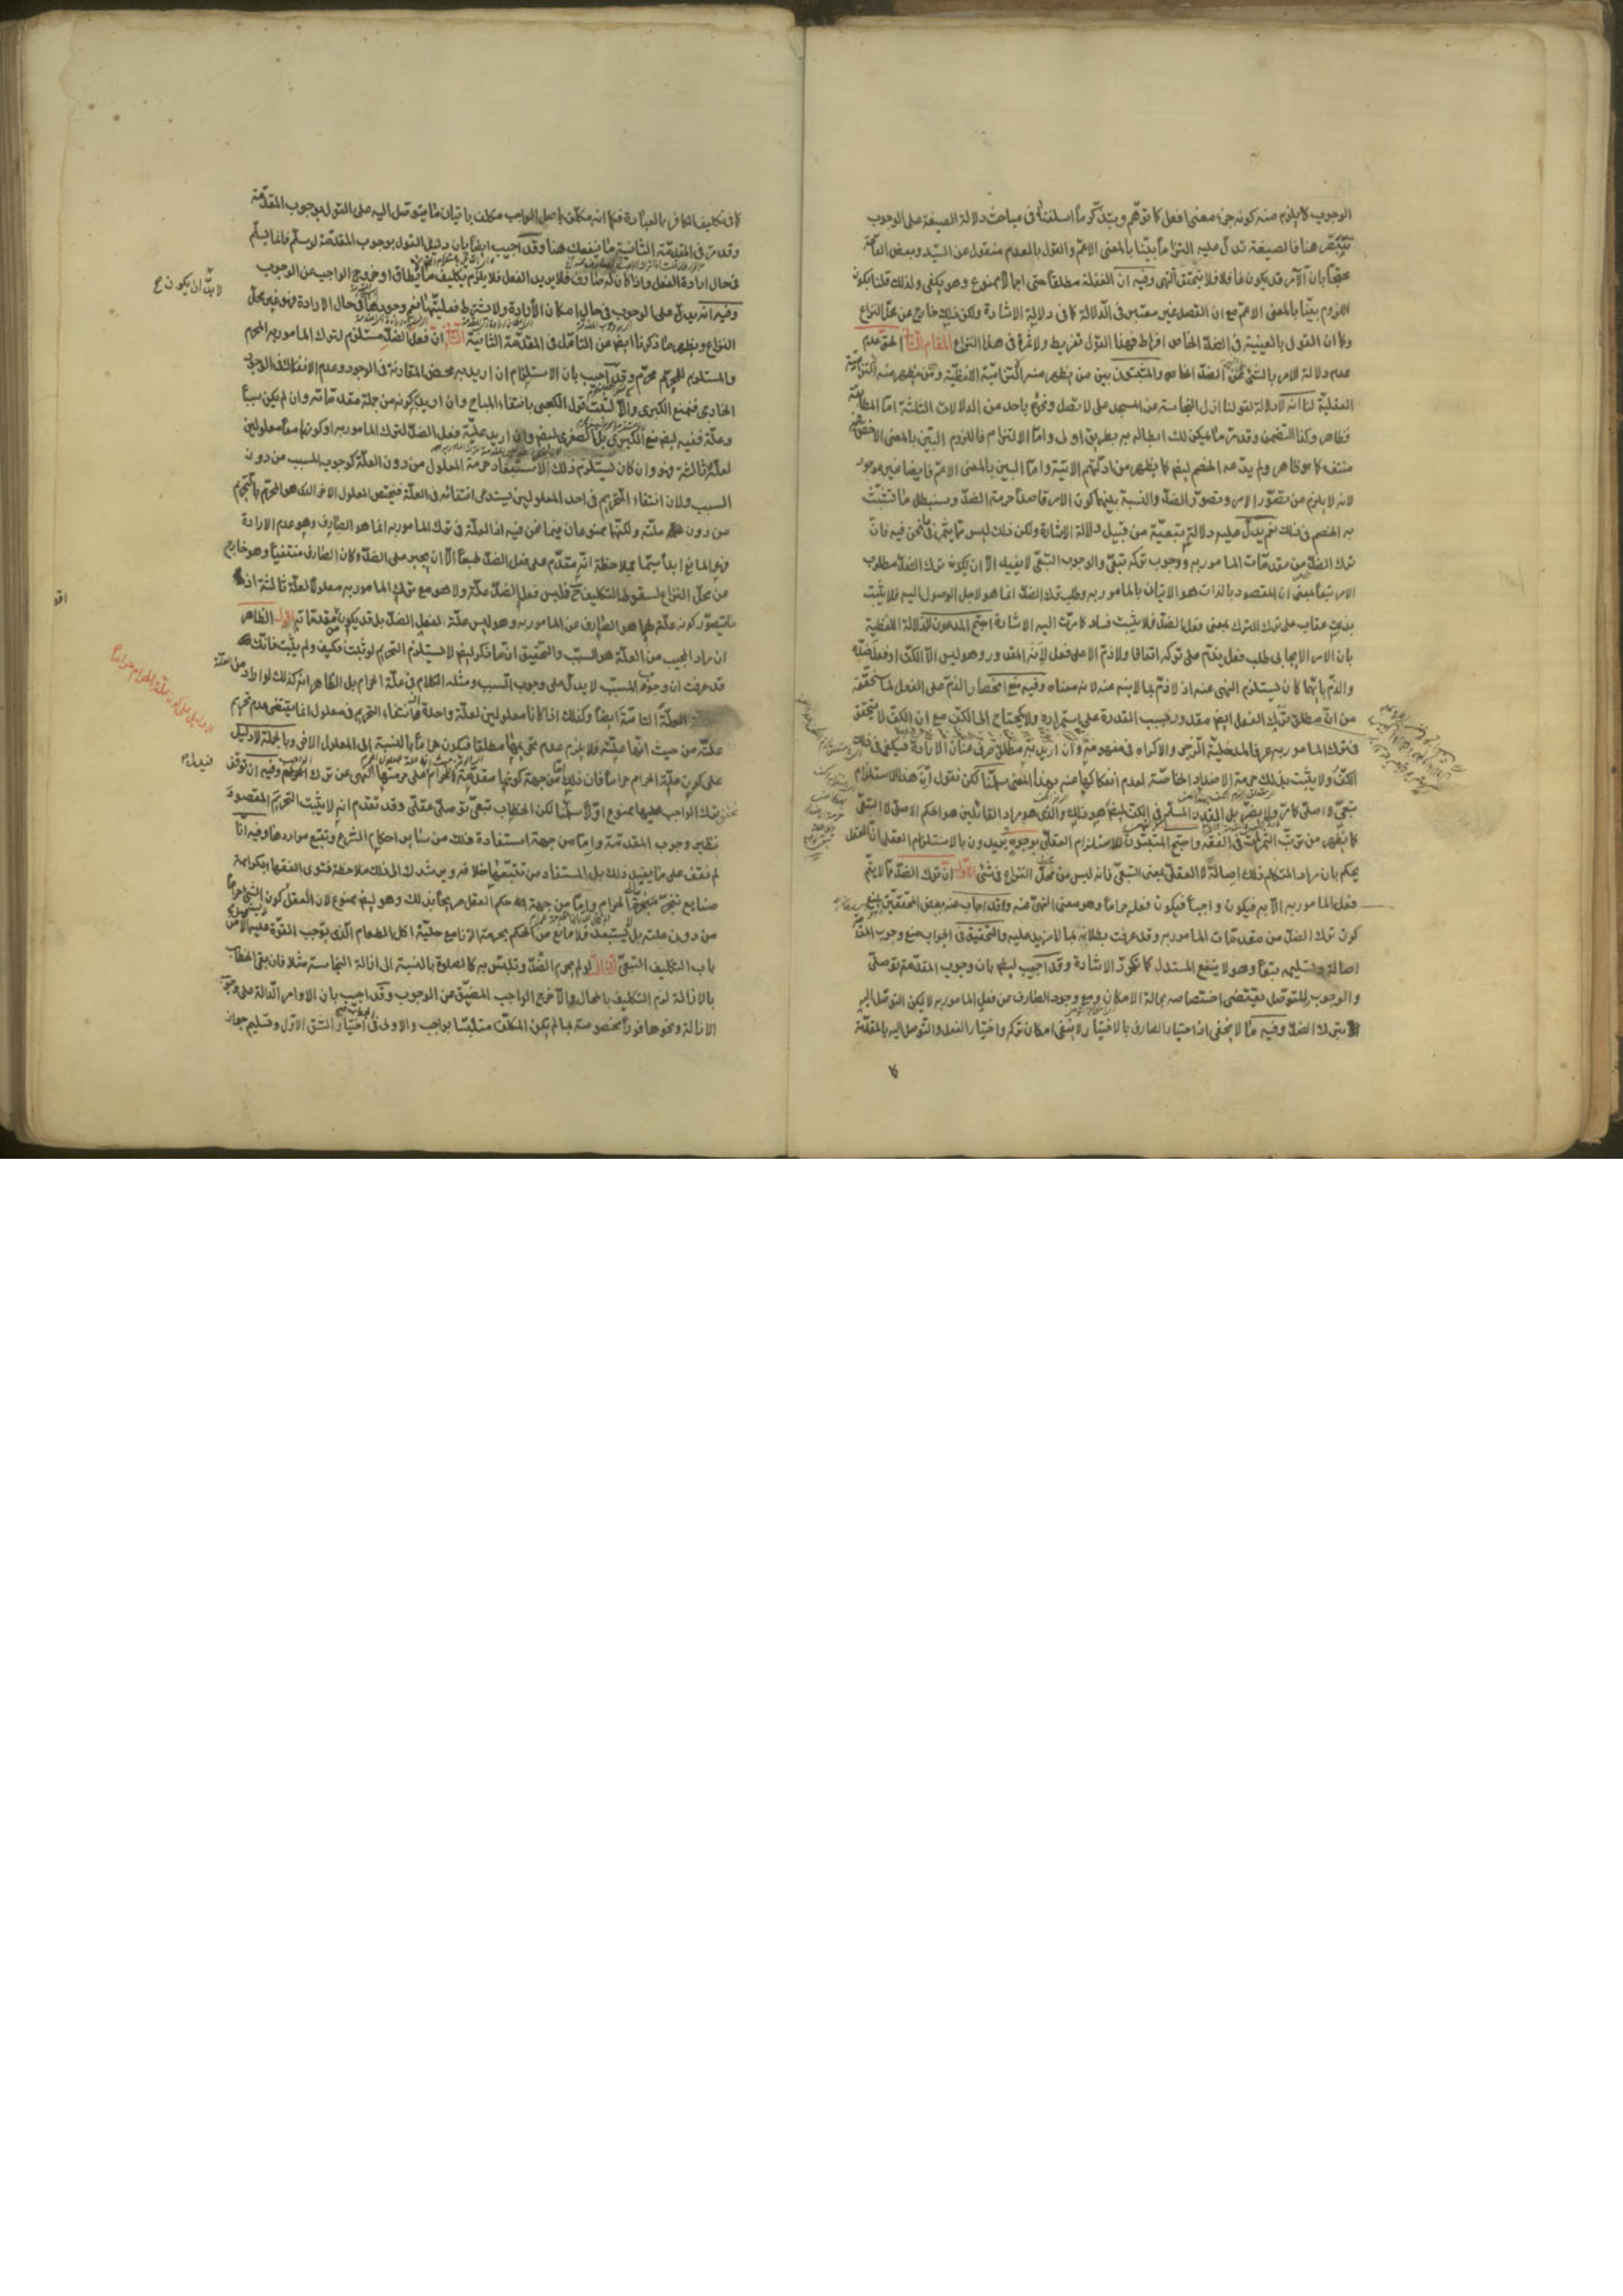 الوجوب كما يلزم منه كونه جزء معنى افعل كما توهم ويتذكر ما اسلفنا في مباحث دلالة الصيغة على الوجوب
هنا فالصيغة تدل عليه التزاما بينا بالمعنى الاعم والقول بالعدم منقول عن السيد وبعض العامة
محتجا بان الآمر قد يكون غافلا فلا يتحقق النهي وفيه ان الغفلة مطلقا حتى اجمالا ممنوع وهو يكفي ولذلك قلنا بكون
اللزوم بينا بالمعنى الاعم مع ان القصد غير معتبر في الدلالة كما في دلالة الاشارة ولكن ذلك خارج عن محل النزاع
وكما ان القول بالعينية في الضد الخاص افراط فهذا القول تفريط ولا ثمرة في هذا النزاع المقام الثاني الحق عدم
عدم دلالة الامر بالشيء عن الضد الخاص والمثبتون بين من يظهر منه التزاميته اللفظية ومن يظهر منه التزاميته
العقلية لنا انه لا دلالة لقولنا ازل النجاسة عن المسجد على لا تصل ونحوه باحد من الدلالات الثلثة اما المطابقة
فظاهر وكذا التضمن وقد مر ما يمكن لك ابطاله به بطريق اولى واما الالتزام فاللزوم البين بالمعنى الاخص
منتف كما هو ظاهر ولم يدعه الخصم ايض كما يظهر من ادلتهم الاتية واما البين بالمعنى الاعم فايضا غير موجود
لانه لا يلزم من تصور الامر وتصور الضد والنسبة بينهما كون الامر قاصدا حرمة الضد وسنبطل ما تشبث
به الخصم في ذلك نعم يدل عليه دلالة تبعية من قبيل دلالة الاشارة ولكن ذلك ليس مما يثمر فيما نحن فيه فان
ترك الضد من مقدمات المامور به ووجوب تركه تبعي والوجوب التبعي لا يفيد الا ان يكون ترك الضد مطلوب
الامر تبعا بمعنى ان المقصود بالذات هو الاتيان بالمامور به وطلب ترك الضد انما هو لاجل الوصول اليه فلا يثبت
بذلك عقاب على ترك الترك بمعنى فعل الضد فلا يثبت فساد كما مرت اليه الاشارة احتج المدعون للدلالة اللفظية
بان الامر الايجابي طلب فعل يذم على تركه اتفاقا ولا ذم الا على فعل لانه المقدور وهو ليس الا الكف او فعل ضده
والذم بايهما كان يستلزم النهي عنه اذ لا ذم بما لا ينه عنه لانه معناه وفيه منع انحصار الذم على الفعل لما سنحققه
من ان مطلق ترك الفعل ايض مقدور بسبب القدرة على استمراره ولا يحتاج الى الكف مع ان الكف لا يتحقق
في ترك المامور به عرفا لمدخلية الزجر والاكراه في مفهومه وان اريد به مطلق صرف عنان الارادة فيكفي في ذلك
الكف ولا يثبت بذلك حرمة الاضداد الخاصة لعدم انفكاكها عنه بهذا المعنى سلمنا لكن نقول ان هذا الاستلزام
تبعي لا اصلي كما مر ولا يضر بل القدر المسلم في الكف ايض هو ذلك والذي هو مراد القائلين هو الحكم الاصلي لا التبعي
كما يظهر من ترتب الثمرات في الفقه واحتج المثبتون للاستلزام العقلي بوجوه يريدون بالاستلزام العقلي ان العقل
يحكم بان مراد المتكلم ذلك اصالة لا العقلي بمعنى التبعي فانه ليس من محل النزاع في شئ الاول ان ترك الضد مما لا يتم
فعل المامور به الا به فيكون واجبا فيكون فعله حراما وهو معنى النهي عنه وقد اجاب عنه بعض المحققين بمنع
كون ترك الضد من مقدمات المامور به وقد عرفت بطلانه بما لا مزيد عليه والتحقيق في الجواب منع وجوب المقدمة
اصالة وتسليمه تبعا وهو لا ينفع المستدل كما تكرر الاشارة وقد اجيب ايض بان وجوب المقدمة توصلي
والوجوب للتوصل يقتضي اختصاصه بحالة الامكان ومع وجود الصارف عن فعل المامور به لا يمكن التوصل اليه
بترك الضد وفيه ما لا يخفى اذ اختيار الصارف بالاختيار لا ينفي امكان تركه واختيار الفعل والتوصل اليه بالمقدمة
كما في تكليف الكافر بالعبادة فكما انه مكلف باصل الواجب مكلف باتيان ما يتوصل اليه على القول بوجوب المقدمة
وقد مر في المقدمة الثانية ما ينفعك هنا وقد اجيب ايضا بان دليل القول بوجوب المقدمة لو سلم فانما يسلم
في حال ارادة الفعل واذا كان له صارف فلا يريد الفعل فلا يلزم تكليف ما يطاق او خروج الواجب عن الوجوب
وفيه انه يدل على الوجوب في حال امكان الارادة ولا يشترط فعليتها نعم وجودها في حال الارادة فهو غير محل
النزاع ويظهر ما ذكرنا ايض من التامل في المقدمة الثانية الثاني ان فعل الضد مستلزم لترك المامور به المحرم
والمستلزم للمحرم محرم وقد اجيب بان الاستلزام ان اريد به محض المقارنة في الوجود وعدم الانفكاك في الوجود
الخارجي فنمنع الكبرى والا لثبت قول الكعبي بانتفاء المباح وان اريد كونه من جملة مقدماته وان لم يكن سببا
وعلة ففيه ايض منع الكبرى بل الصغرى ايض وان اريد علية فعل الضد لترك المامور به او كونهما معا معلولين
لعلة ثالثة فهو وان كان يستلزم ذلك لاستبعاد حرمة المعلول من دون العلة كوجوب المسبب من دون
السبب ولان انتفاء التحريم في احد المعلولين يستدعي انتفائه في العلة فيختص المعلول الاخر الذي هو المحرم بالتحريم
من دون علته ولكنهما ممنوعان فيما نحن فيه اذ العلة في ترك المامور به انما هو الصارف وهو عدم الارادة
فهو المانع ابدا سيما بملاحظة انه متقدم على فعل الضد طبعا الا ان يجبر على الضد وكان الصارف منتفيا وهو خارج
عن محل النزاع لسقوط التكليف ح فليس فعل الضد علة ولا هو مع ترك المامور به معلولا لعلة ثالثة اذ
ما يتصور كونه علة لهما هو الصارف عن المامور به وهو ليس علة لفعل الضد بل قد يكون من مقدماته اقول الظاهر
ان مراد المجيب من العلة هو السبب والتحقيق ان ما ذكر ايض لا يستلزم التحريم لو ثبت فكيف ولم يثبت فانك
قد عرفت ان وجوب المسبب لا يدل على وجوب السبب ومثله الكلام في علة الحرام بل الظاهر انه كذلك لو اراد من العلة
العلة التامة ايضا وكذلك اذا كانا معلولين لعلة واحدة فان انتفاء التحريم في معلول انما يقتضي عدم تحريم
علته من حيث انها علته فلا يلزم عدم تحريمها مطلقا فيكون حراما بالنسبة الى المعلول الاخر وبالجملة لا دليل
على كون علة الحرام حراما فان ذلك اما من جهة كونها مقدمة للحرام
بترك الواجب عليها ممنوع اولا سلمنا لكن الخطاب تبعي توصلي عقلي وقد تقدم انه لا يثبت التحريم المقصود
نظير وجوب المقدمة واما من جهة استفادة ذلك من سائر احكام الشرع وتتبع مواردها وفيه انا
لم نقف على ما يفيد ذلك بل المستفاد من تتبعها خلافه ويرشدك الى ذلك ملاحظة فتوى الفقها بكراهة
صنايع تنجر الى الحرام واما من جهة حكم العقل صريحا بذلك وهو ايض ممنوع لان العقل
من دون علته بل يستبعد فلا مانع من الحكم بحرمة الزنا مع حلية اكل الطعام الذي يوجب القوة عليه الا من
باب التكليف التبعي الثالث لو لم يحرم الضد وتلبس به كالصلوة بالنسبة الى ازالة النجاسة مثلا فان بقي الخطاب
بالازالة لزم التكليف بالمحال والا خرج الواجب المضيق عن الوجوب وقد اجيب بان الاوامر الدالة على وجوب
الازالة ونحوها فورا مخصوصة بما لم يكن المكلف متلبسا بواجب والاولى في الجواب اختيار الشق الاول وتسليم جواز
لا بد ان يكون ح
لا دليل على كون علة الحرام حراما